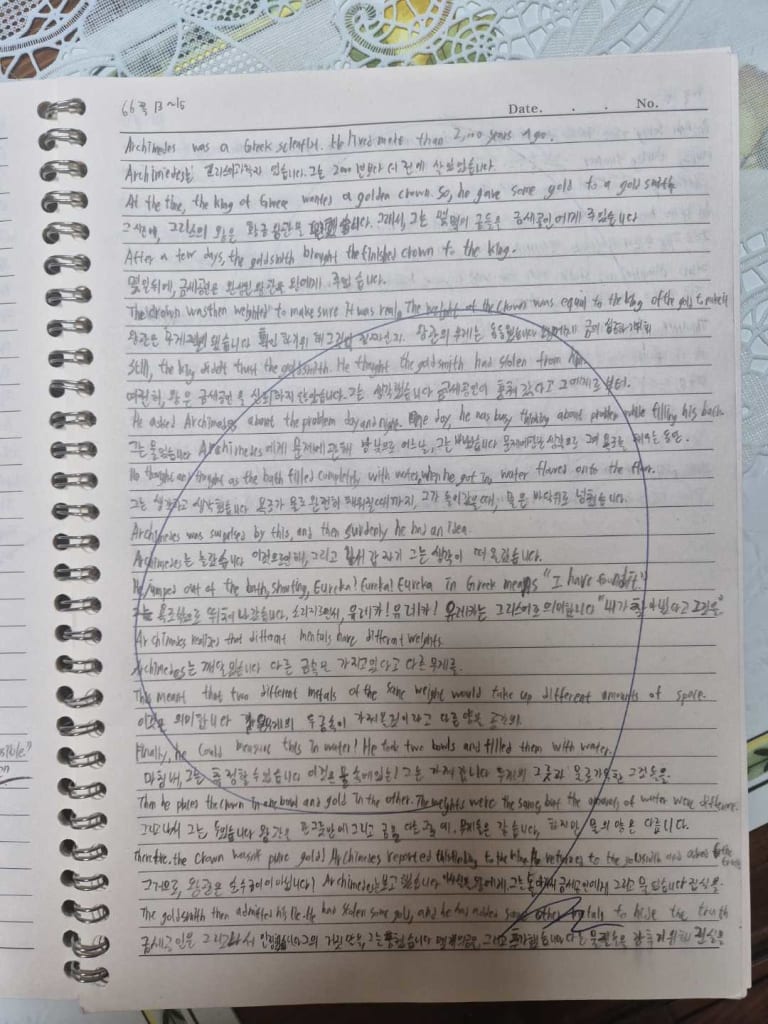 66쪽 13~15
Date. . . No.
Archimedes was a Greek scientist. He lived more than 2,000 years ago.
Archimedes는 그리스과학자 였습니다. 그는 2000년보다 더 전에 살았었습니다.
At the time, the king of Greece wanted a golden crown. So, he gave some gold to a goldsmith
그 당시에, 그리스의 왕은 황금 왕관을 습니다. 그래서, 그는 몇몇의 금들을 금세공인에게 주었습니다
After a few days, the goldsmith brought the finished crown to the king.
몇일뒤에, 금세공인은 완성된 왕관을 왕에게 주었습니다.
The crown was then weighted to make sure it was real. The weight of the crown was equal to the of the gold
왕관은 무게 습니다 확인하기위해 진짜인지. 왕관의 무게는 금의
Still, the king didn't trust the goldsmith. He thought the goldsmith had stolen from him.
여전히, 왕은 금세공인을 신뢰하지 않았습니다. 그는 생각했습니다 금세공인이 훔쳐갔다고 그에게로 부터.
He asked Archimedes about the problem day and night. One day, he was busy thinking about while filling his bath.
그는 물었습니다 Archimedes에게 문제에 관해 밤낮으로 어느날, 그는 바빴습니다 그의 욕조를 채우는 동안.
He thought and thought as the bath filled completely with water, when he got in, water flowed onto the floor.
그는 생각하고 생각했습니다 욕조가 물로 완전히 채워질때까지, 그가 들어갔을때, 물은 바닥위로 넘쳤습니다.
Archimedes was surprised by this, and then suddenly he had an idea.
Archimedes는 놀랐습니다 이것으로인해, 그리고 갑자기 그는 생각이 떠 올랐습니다.
He jumped out of the bath, shouting, Eureka! Eureka! Eureka in Greek means "I have found it"
그는 욕조밖으로 뛰쳐나갔습니다, 소리지르면서, 유레카! 유레카! 유레카는 그리스어로 의미합니다 "내가 찾아냈다고 그것을"
Archimedes realizes that different mentals have different weights.
Archimedes는 깨달았습니다 다른 금속은 가지고있다고 다른 무게를.
This meant that two different metals of the same weight would take up different amounts of space.
이것은 의미합니다 무게의 두 금속이 가질것이라고 다른 양의 공간의.
Finally, he could measure this in water! He took two bowls and filled them with water.
마침내, 그는 측정할 수있었습니다 이것은 물 속에있는! 그는 가져갑니다 두개의 그릇과 물로가득한 그것들을.
Then he places the crown in one bowl and gold in the other. The weights were the same, but the amounts of water were difference.
그리고나서 그는, 두었습니다 왕관을 한그릇안에 그리고 금을 다른 그릇에. 무게들은 같습니다, 하지만 물의 양은 다릅니다.
Therefore, the crown wasn't pure gold! Archimedes reported this finding to the king. He returned to the goldsmith and asked for the truth
그러므로, 왕관은 순수금이아닙니다! Archimedes는보고 했습니다 왕에게, 그는 금세공인에게 그리고 진실을.
The goldsmith then admitted his lie. He had stolen some gold, and he has added some other metals to hide the truth
금세공인은 그리고나서 인정했습니다그의 거짓말을, 그는훔쳤습니다 몇개의금을, 그리고 추가했습니다 다른 금속을 감추기위해 진실을